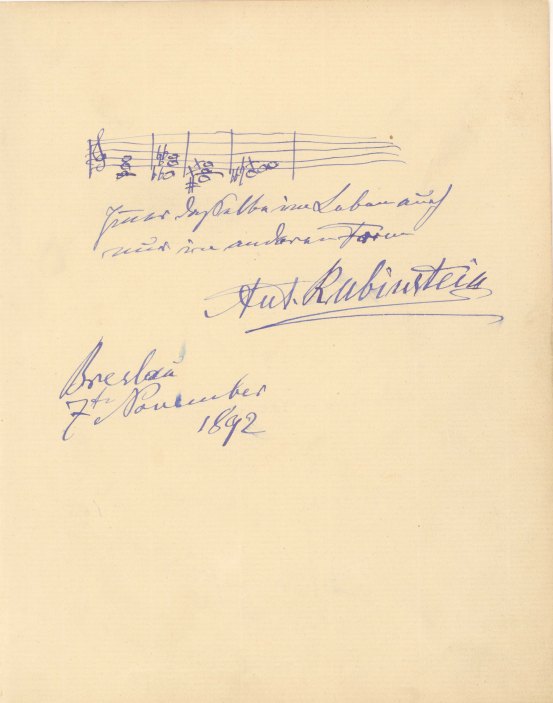 Immer dasselbe im Leben auch
nur in anderen Form
Ant. Rubinstein
Breslau
7te November
1892